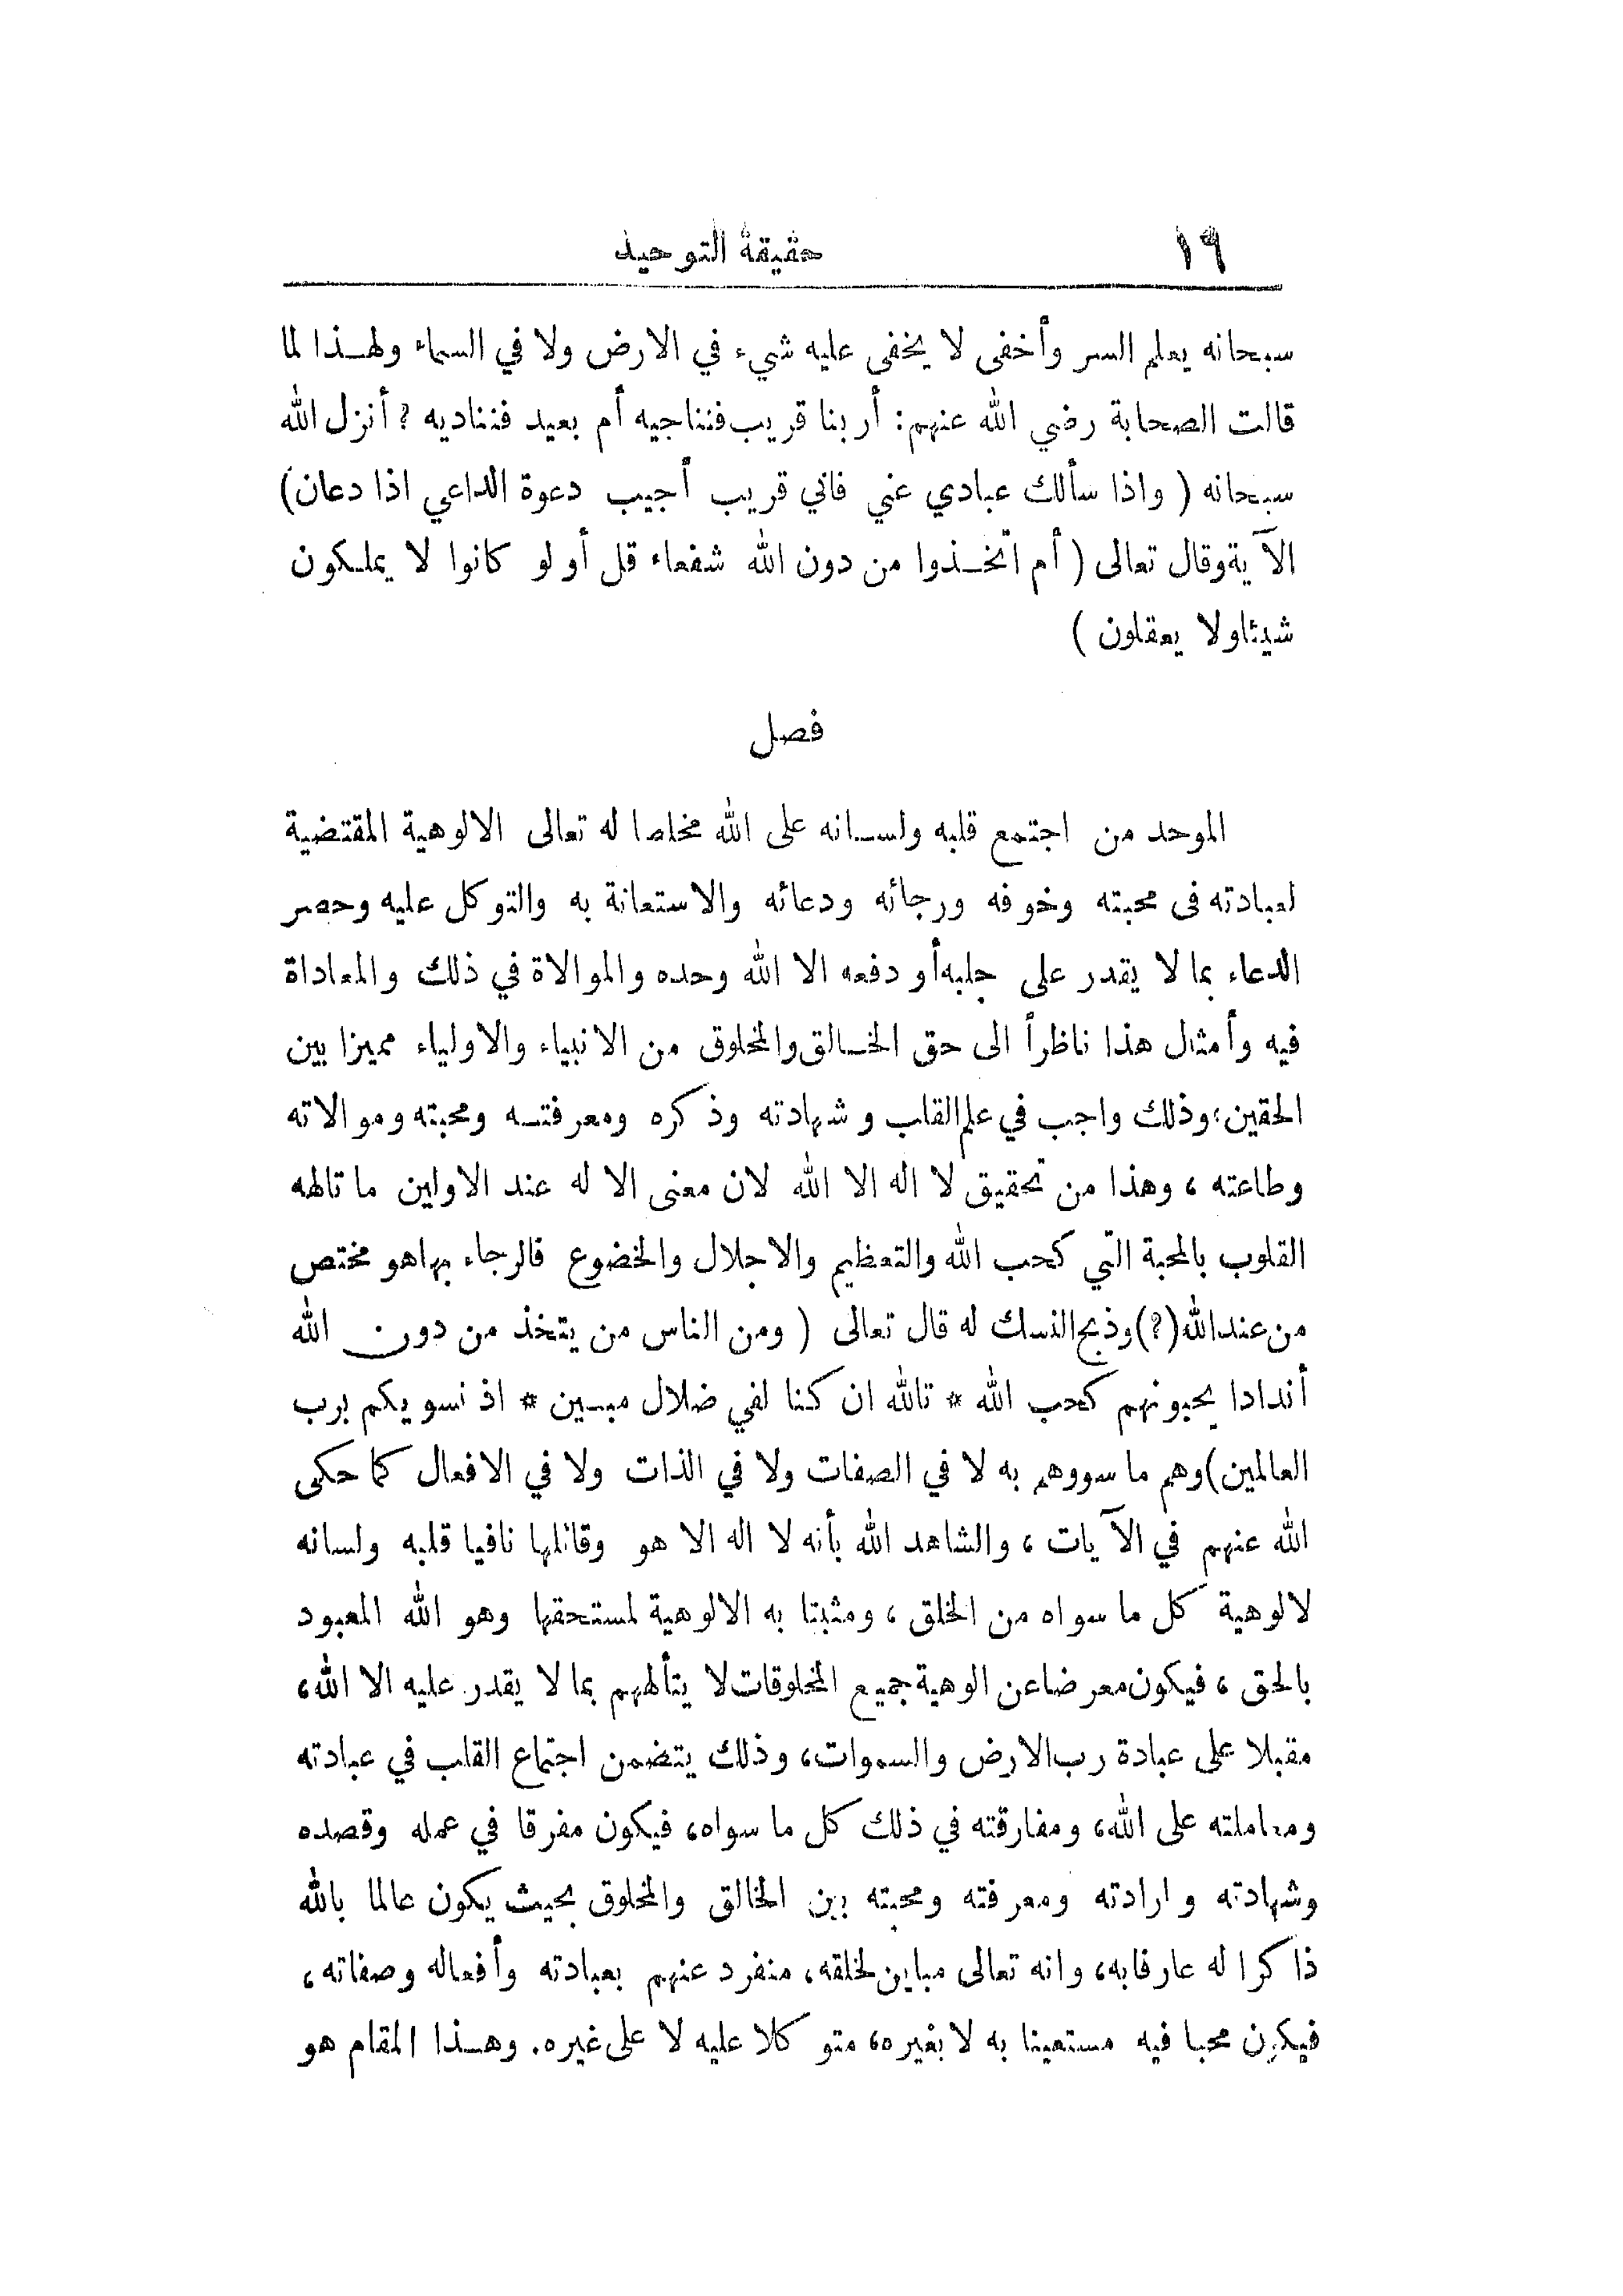 ١٩ حقيقة التوحيد
سبحانه يعلم السر وأخفى لا يخفى عليه شيء في الارض ولا في السماء ولهـذا لما
قالت الصحابة رضي الله عنهم: أربنا قريب فنناجيه أم بعيد فنناديه ؟ أنزل الله
سبحانه ( واذا سألك عبادي عني فاني قريب أجيب دعوة الداعي اذا دعان)
الآية وقال تعالى ( أم اتخـذوا من دون الله شفعاء قل أولو كانوا لا يملكون
شيئا ولا يعقلون )
فصل
الموحد من اجتمع قلبه ولسـانه على الله مخلصا له تعالى الالوهية المقتضية
لعبادته فى محبته وخوفه ورجائه ودعائه والاستعانة به والتوكل عليه وحصر
الدعاء بما لا يقدر على جلبه أو دفعه الا الله وحده والموالاة في ذلك والمعاداة
فيه وأمثال هذا ناظراً الى حق الخـالق والمخلوق من الانبياء والاولياء مميزا بين
الحقين؛ وذلك واجب في علم القلب وشهادته وذكره ومعرفتـه ومحبته وموالاته
وطاعته ، وهذا من تحقيق لا اله الا الله لان معنى الاله عند الاولين ما تالهه
القلوب بالمحبة التي كحب الله والتعظيم والاجلال والخضوع فالرجاء بما هو مختص
من عند الله(؟) وذبح النسك له قال تعالى ( ومن الناس من يتخذ من دون الله
أندادا يحبونهم كحب الله * تالله ان كنا لفي ضلال مبـين * اذ نسويكم برب
العالمين) وهم ما سووهم به لا في الصفات ولا في الذات ولا في الافعال كما حكى
الله عنهم في الآيات ، والشاهد الله بأنه لا اله الا هو وقائلها نافيا قلبه ولسانه
لالوهية كل ما سواه من الخلق ، ومثبتا به الالوهية لمستحقها وهو الله المعبود
بالحق ، فيكون معرضا عن الوهية جميع المخلوقات لا يتألههم بما لا يقدر عليه الا الله،
مقبلا على عبادة رب الارض والسموات، وذلك يتضمن اجتماع القلب في عبادته
ومعاملته على الله، ومفارقته في ذلك كل ما سواه، فيكون مفرقا في عمله وقصده
وشهادته وارادته ومعرفته ومحبته بين الخالق والمخلوق بحيث يكون عالما بالله
ذاكرا له عارفا به، وانه تعالى مباين لخلقه، منفرد عنهم بعبادته وأفعاله وصفاته،
فيكون محبا فيه مستعينا به لا بغيره، متوكلا عليه لا على غيره. وهـذا المقام هو